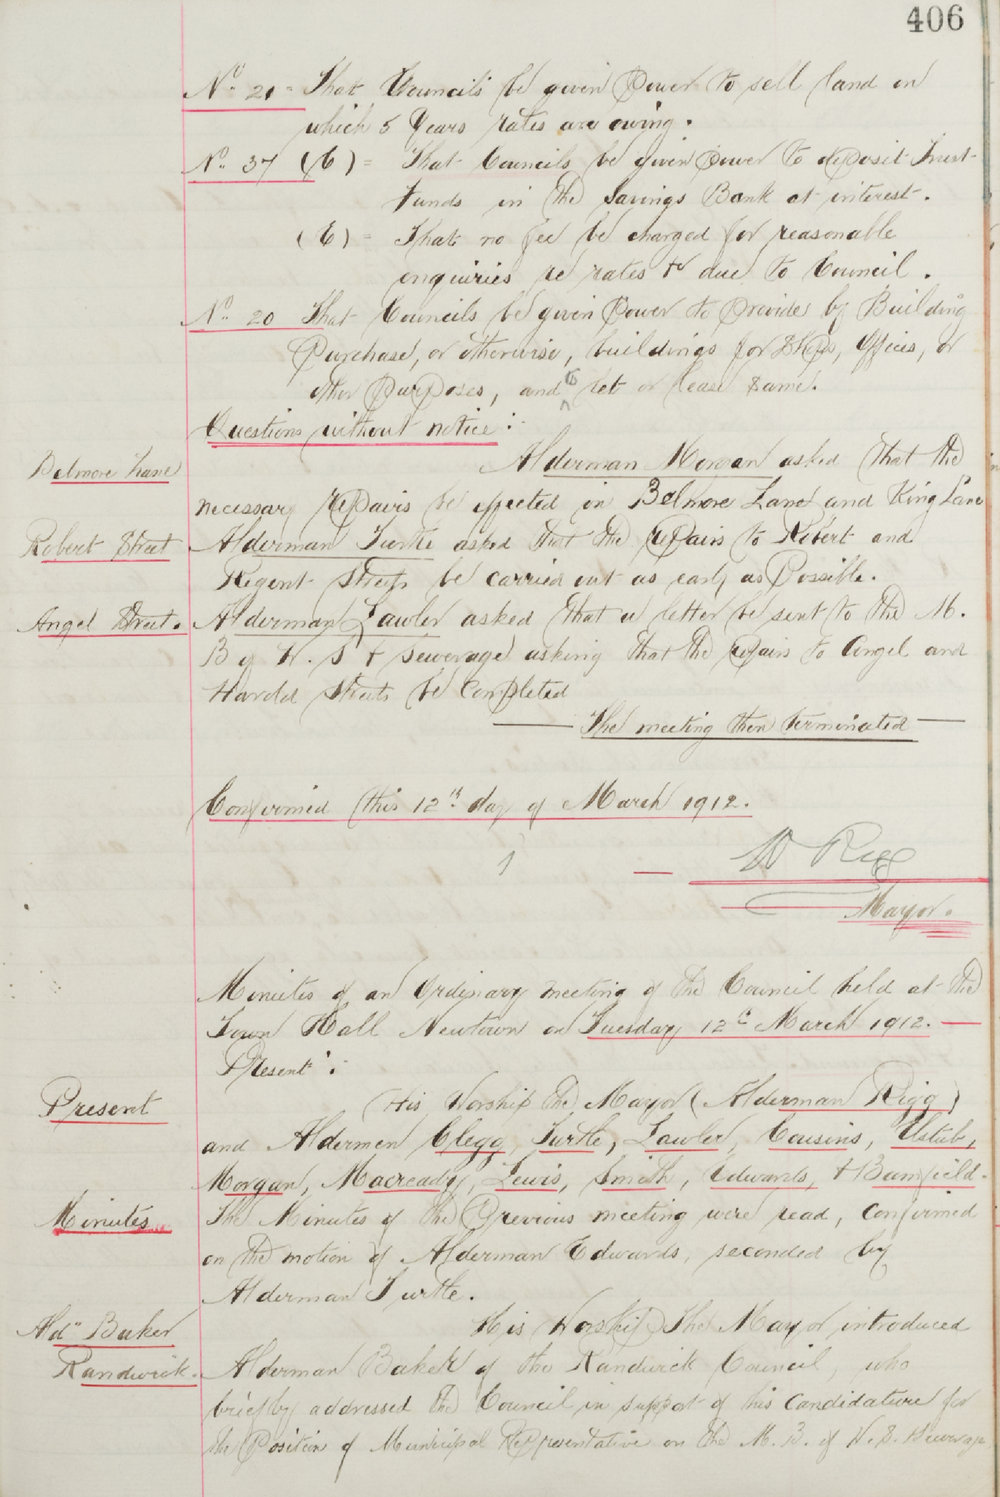 406
No. 21 - That Councils be given Power to sell land on
which 5 Years rates are owing.
No. 37 (C) = That Councils be given Power to deposit Trust
Funds in the Savings Bank at interest.
(E) = That no fee be charged for reasonable
enquiries re rates &c due to Council.
No. 20 That Councils be given Power to Provide by Building
Purchase, or otherwise, buildings for Shops, Offices, or
other Purposes, and to let or lease same.
Questions without notice:
Belmore Lane
Alderman Morgan asked that the
necessary repairs be effected in Belmore Lane and King Lane
Robert Street
Alderman Turtle asked that the repairs to Robert and
Regent Streets be carried out as early as Possible.
Angel Street.
Alderman Lawler asked that a letter be sent to the M.
B of W. S & Sewerage asking that the repairs to Angel and
Harold Streets be Completed
The meeting then terminated
Confirmed this 12th day of March 1912.
W Rigg
Mayor.
Minutes of an Ordinary meeting of the Council held at the
Town Hall Newtown on Tuesday 12th March 1912.
Present:
Present
His Worship the Mayor (Alderman Rigg)
and Aldermen Clegg, Turtle, Lawler, Cousins,
Morgan, Macready, Lewis, Smith, Edwards, & Bamfield.
Minutes
The Minutes of the Previous meeting were read, confirmed
on the motion of Alderman Edwards, seconded by
Alderman Turtle.
Aldn Baker
Randwick.
His Worship The Mayor introduced
Alderman Baker of the Randwick Council, who
briefly addressed the Council in support of his Candidature for
the Position of Municipal Representative on the M. B. of W. S. Sewerage